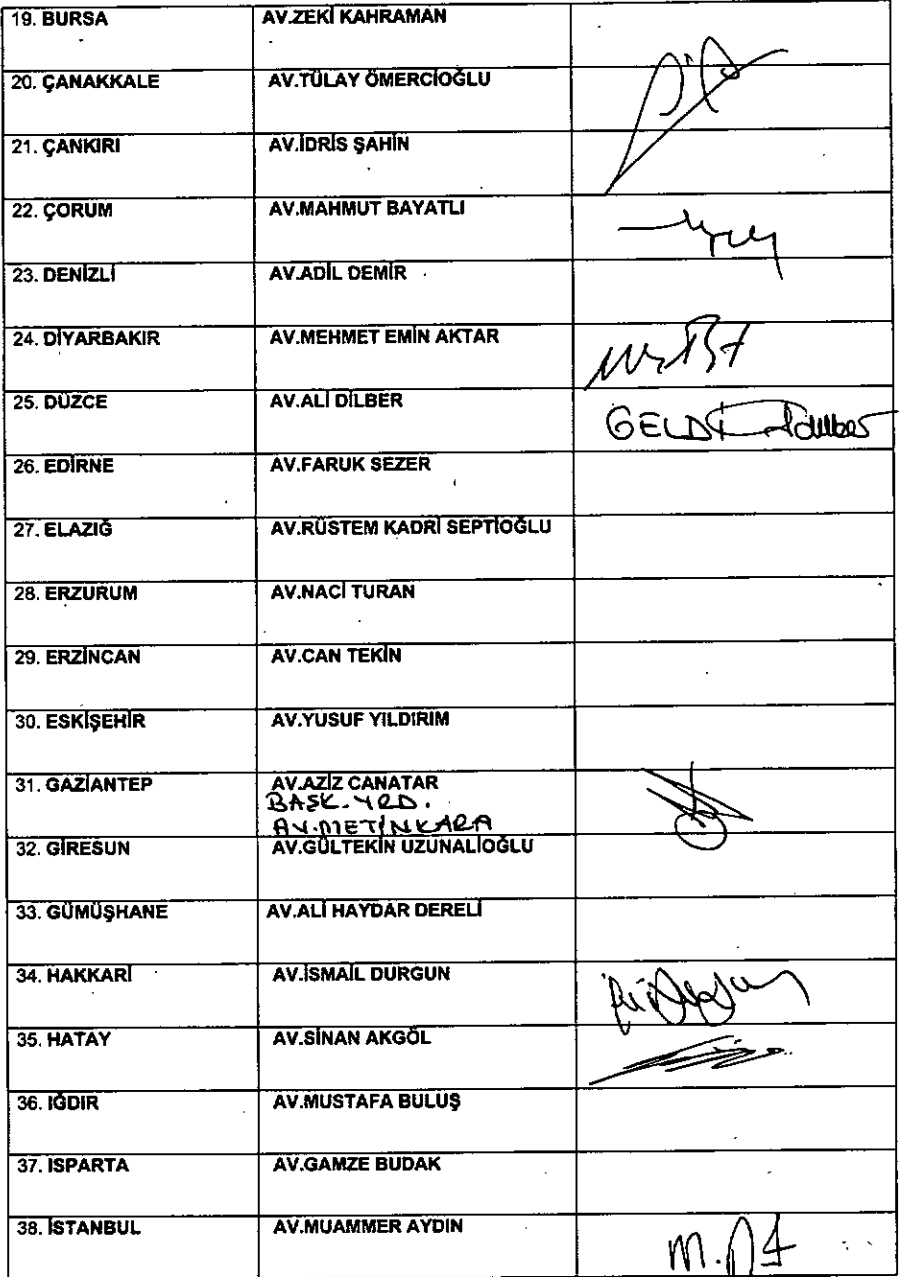 19. BURSA AV.ZEKİ KAHRAMAN
20. ÇANAKKALE AV.TÜLAY ÖMERCİOĞLU
21. ÇANKIRI AV.İDRİS ŞAHİN
22. ÇORUM AV.MAHMUT BAYATLI
23. DENİZLİ AV.ADİL DEMİR
24. DİYARBAKIR AV.MEHMET EMİN AKTAR
25. DÜZCE AV.ALİ DİLBER GELDİ
26. EDİRNE AV.FARUK SEZER
27. ELAZIĞ AV.RÜSTEM KADRİ SEPTİOĞLU
28. ERZURUM AV.NACİ TURAN
29. ERZİNCAN AV.CAN TEKİN
30. ESKİŞEHİR AV.YUSUF YILDIRIM
31. GAZİANTEP AV.AZİZ CANATAR
BAŞK. YRD.
AV.METİN KARA
32. GİRESUN AV.GÜLTEKİN UZUNALİOĞLU
33. GÜMÜŞHANE AV.ALİ HAYDAR DERELİ
34. HAKKARİ AV.İSMAİL DURGUN
35. HATAY AV.SİNAN AKGÖL
36. IĞDIR AV.MUSTAFA BULUŞ
37. ISPARTA AV.GAMZE BUDAK
38. İSTANBUL AV.MUAMMER AYDIN